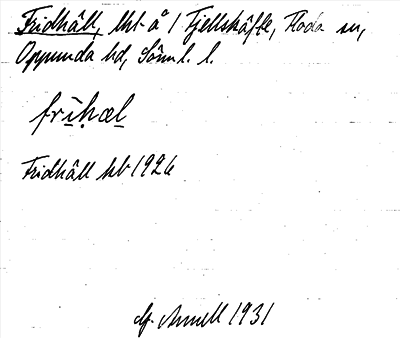 Fridhäll, lht å 1 Fjellskäfte, Floda sn,
Oppunda hd, Södm l. l.
frìḥæl
Fridhäll lht 1926
1931